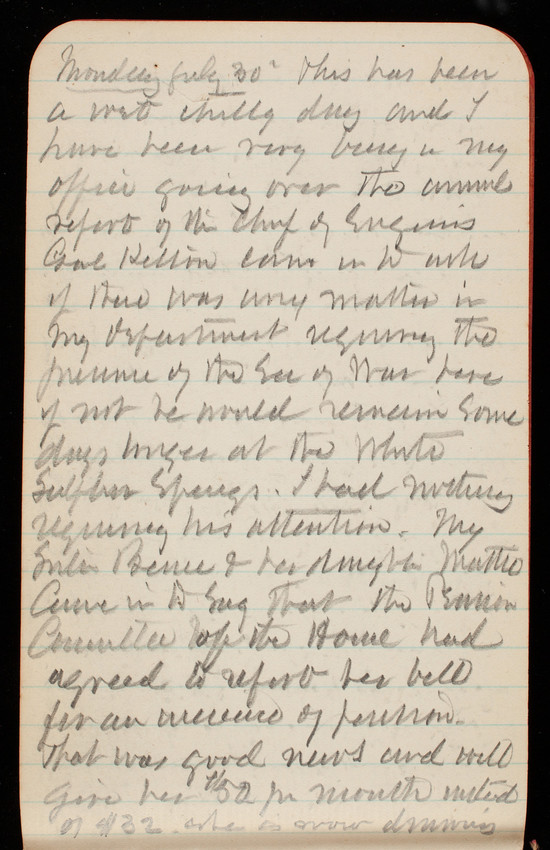 Monday July 30" This has been
a wet chilly day and I
have been very busy in my
office going over the annual
report of the Chief of Engineers
Genl Kelton came in to ask
if there was any matter in
my department requiring the
presence of the Sec of War here
if not he would remain some
days longer at the White
Sulpher Springs. I had nothing
requiring his attention. My
Sister & her daughter Mattie
came in to say that the Pension
Committee of the House had
agreed to report her bill
for an increase of pension.
That was good news and will
give her $50 per month instead
of $32. she is now drawing